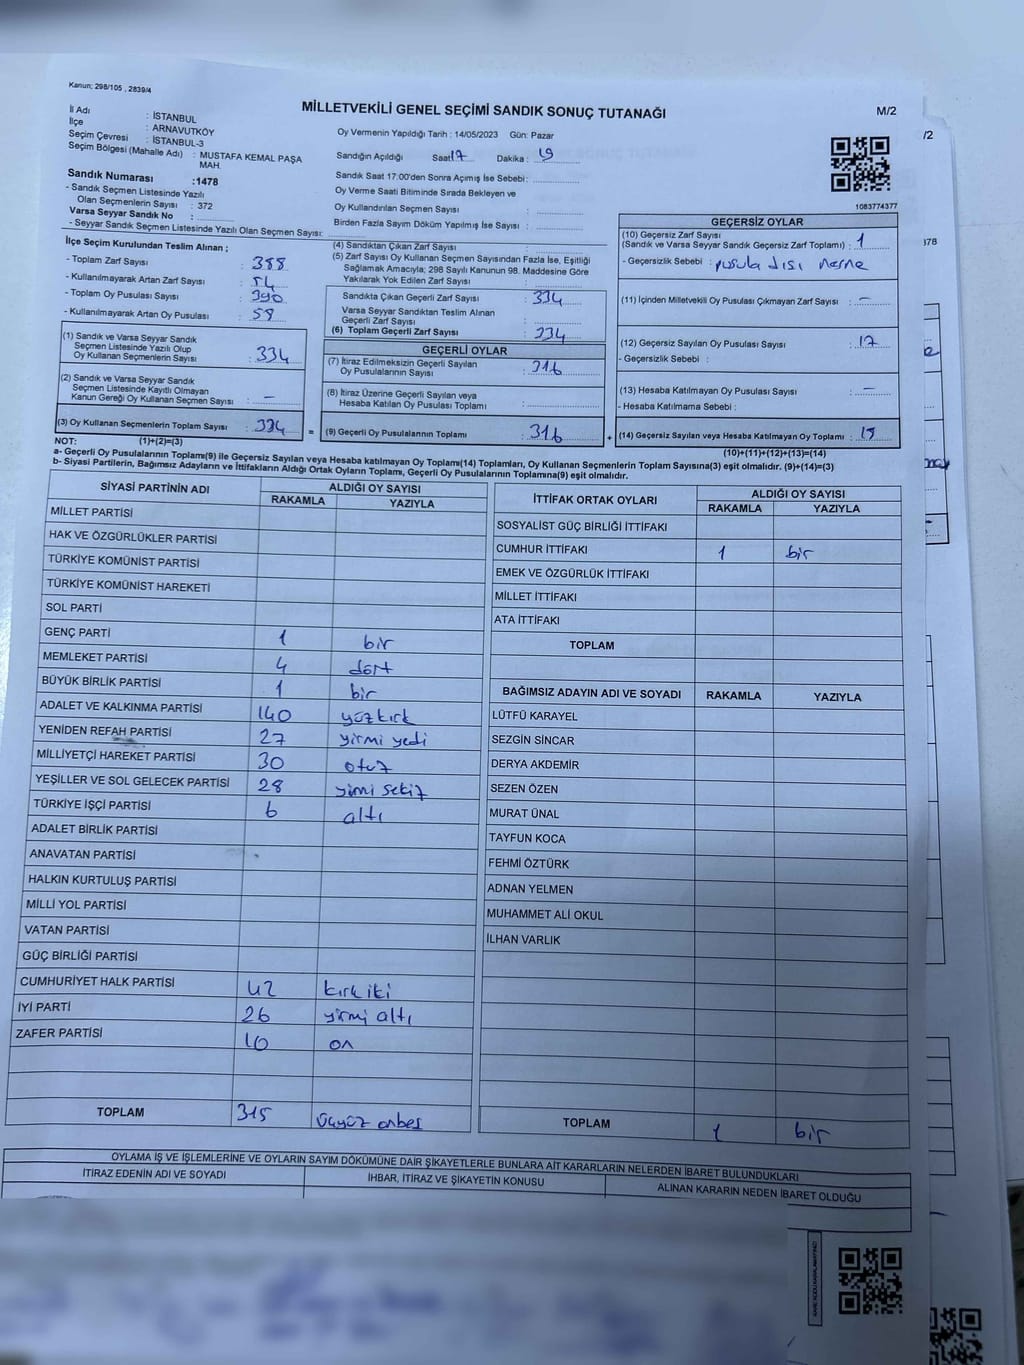 Kanun; 298/105 , 2839/4
MİLLETVEKİLİ GENEL SEÇİMİ SANDIK SONUÇ TUTANAĞI
M/2
İl Adı : İSTANBUL
İlçe : ARNAVUTKÖY
Seçim Çevresi : İSTANBUL-3
Seçim Bölgesi (Mahalle Adı) : MUSTAFA KEMAL PAŞA
MAH.
Sandık Numarası :1478
- Sandık Seçmen Listesinde Yazılı
Olan Seçmenlerin Sayısı : 372
Varsa Seyyar Sandık No :
- Seyyar Sandık Seçmen Listesinde Yazılı Olan Seçmen Sayısı:
Oy Vermenin Yapıldığı Tarih : 14/05/2023 Gün: Pazar
Sandığın Açıldığı Saat: 17 Dakika : 19
Sandık Saat 17:00'den Sonra Açımış İse Sebebi:
Oy Verme Saati Bitiminde Sırada Bekleyen ve
Oy Kullandırılan Seçmen Sayısı :
Birden Fazla Sayım Döküm Yapılmış İse Sayısı :
1083774377
İlçe Seçim Kurulundan Teslim Alınan ;
- Toplam Zarf Sayısı : 388
- Kullanılmayarak Artan Zarf Sayısı : 54
- Toplam Oy Pusulası Sayısı : 390
- Kullanılmayarak Artan Oy Pusulası : 58
(1) Sandık ve Varsa Seyyar Sandık
Seçmen Listesinde Yazılı Olup
Oy Kullanan Seçmenlerin Sayısı : 334
(2) Sandık ve Varsa Seyyar Sandık
Seçmen Listesinde Kayıtlı Olmayan
Kanun Gereği Oy Kullanan Seçmen Sayısı : -
(3) Oy Kullanan Seçmenlerin Toplam Sayısı : 334
(4) Sandıktan Çıkan Zarf Sayısı :
(5) Zarf Sayısı Oy Kullanan Seçmen Sayısından Fazla İse, Eşitliği
Sağlamak Amacıyla; 298 Sayılı Kanunun 98. Maddesine Göre
Yakılarak Yok Edilen Zarf Sayısı :
Sandıkta Çıkan Geçerli Zarf Sayısı : 334
Varsa Seyyar Sandıktan Teslim Alınan
Geçerli Zarf Sayısı :
(6) Toplam Geçerli Zarf Sayısı : 334
GEÇERLİ OYLAR
(7) İtiraz Edilmeksizin Geçerli Sayılan
Oy Pusulalarının Sayısı : 316
(8) İtiraz Üzerine Geçerli Sayılan veya
Hesaba Katılan Oy Pusulası Toplamı :
= (9) Geçerli Oy Pusulalarının Toplamı : 316
GEÇERSİZ OYLAR
(10) Geçersiz Zarf Sayısı
(Sandık ve Varsa Seyyar Sandık Geçersiz Zarf Toplamı) : 1
- Geçersizlik Sebebi : pusula dışı nesne
(11) İçinden Milletvekili Oy Pusulası Çıkmayan Zarf Sayısı : -
(12) Geçersiz Sayılan Oy Pusulası Sayısı : 17
- Geçersizlik Sebebi :
(13) Hesaba Katılmayan Oy Pusulası Sayısı : -
- Hesaba Katılmama Sebebi :
+ (14) Geçersiz Sayılan veya Hesaba Katılmayan Oy Toplamı :
NOT: (1)+(2)=(3)
(10)+(11)+(12)+(13)=(14)
a- Geçerli Oy Pusulalarının Toplamı(9) ile Geçersiz Sayılan veya Hesaba katılmayan Oy Toplamı(14) Toplamları, Oy Kullanan Seçmenlerin Toplam Sayısına(3) eşit olmalıdır. (9)+(14)=(3)
b- Siyasi Partilerin, Bağımsız Adayların ve İttifakların Aldığı Ortak Oyların Toplamı, Geçerli Oy Pusulalarının Toplamına(9) eşit olmalıdır.
SİYASİ PARTİNİN ADI
ALDIĞI OY SAYISI
RAKAMLA YAZIYLA
MİLLET PARTİSİ
HAK VE ÖZGÜRLÜKLER PARTİSİ
TÜRKİYE KOMÜNİST PARTİSİ
TÜRKİYE KOMÜNİST HAREKETİ
SOL PARTİ
GENÇ PARTİ 1 bir
MEMLEKET PARTİSİ 4 dört
BÜYÜK BİRLİK PARTİSİ 1 bir
ADALET VE KALKINMA PARTİSİ 140 yüzkırk
YENİDEN REFAH PARTİSİ 27 yirmi yedi
MİLLİYETÇİ HAREKET PARTİSİ 30 otuz
YEŞİLLER VE SOL GELECEK PARTİSİ 28 yirmi sekiz
TÜRKİYE İŞÇİ PARTİSİ 6 altı
ADALET BİRLİK PARTİSİ
ANAVATAN PARTİSİ
HALKIN KURTULUŞ PARTİSİ
MİLLİ YOL PARTİSİ
VATAN PARTİSİ
GÜÇ BİRLİĞİ PARTİSİ
CUMHURİYET HALK PARTİSİ 42 kırk iki
İYİ PARTİ 26 yirmi altı
ZAFER PARTİSİ 10 on
TOPLAM 315 üçyüz onbeş
İTTİFAK ORTAK OYLARI
ALDIĞI OY SAYISI
RAKAMLA YAZIYLA
SOSYALİST GÜÇ BİRLİĞİ İTTİFAKI
CUMHUR İTTİFAKI 1 bir
EMEK VE ÖZGÜRLÜK İTTİFAKI
MİLLET İTTİFAKI
ATA İTTİFAKI
TOPLAM
BAĞIMSIZ ADAYIN ADI VE SOYADI RAKAMLA YAZIYLA
LÜTFÜ KARAYEL
SEZGİN SİNCAR
DERYA AKDEMİR
SEZEN ÖZEN
MURAT ÜNAL
TAYFUN KOCA
FEHMİ ÖZTÜRK
ADNAN YELMEN
MUHAMMET ALİ OKUL
İLHAN VARLIK
TOPLAM 1 bir
OYLAMA İŞ VE İŞLEMLERİNE VE OYLARIN SAYIM DÖKÜMÜNE DAİR ŞİKAYETLERLE BUNLARA AİT KARARLARIN NELERDEN İBARET BULUNDUKLARI
İTİRAZ EDENİN ADI VE SOYADI
İHBAR, İTİRAZ VE ŞİKAYETİN KONUSU
ALINAN KARARIN NEDEN İBARET OLDUĞU
/2